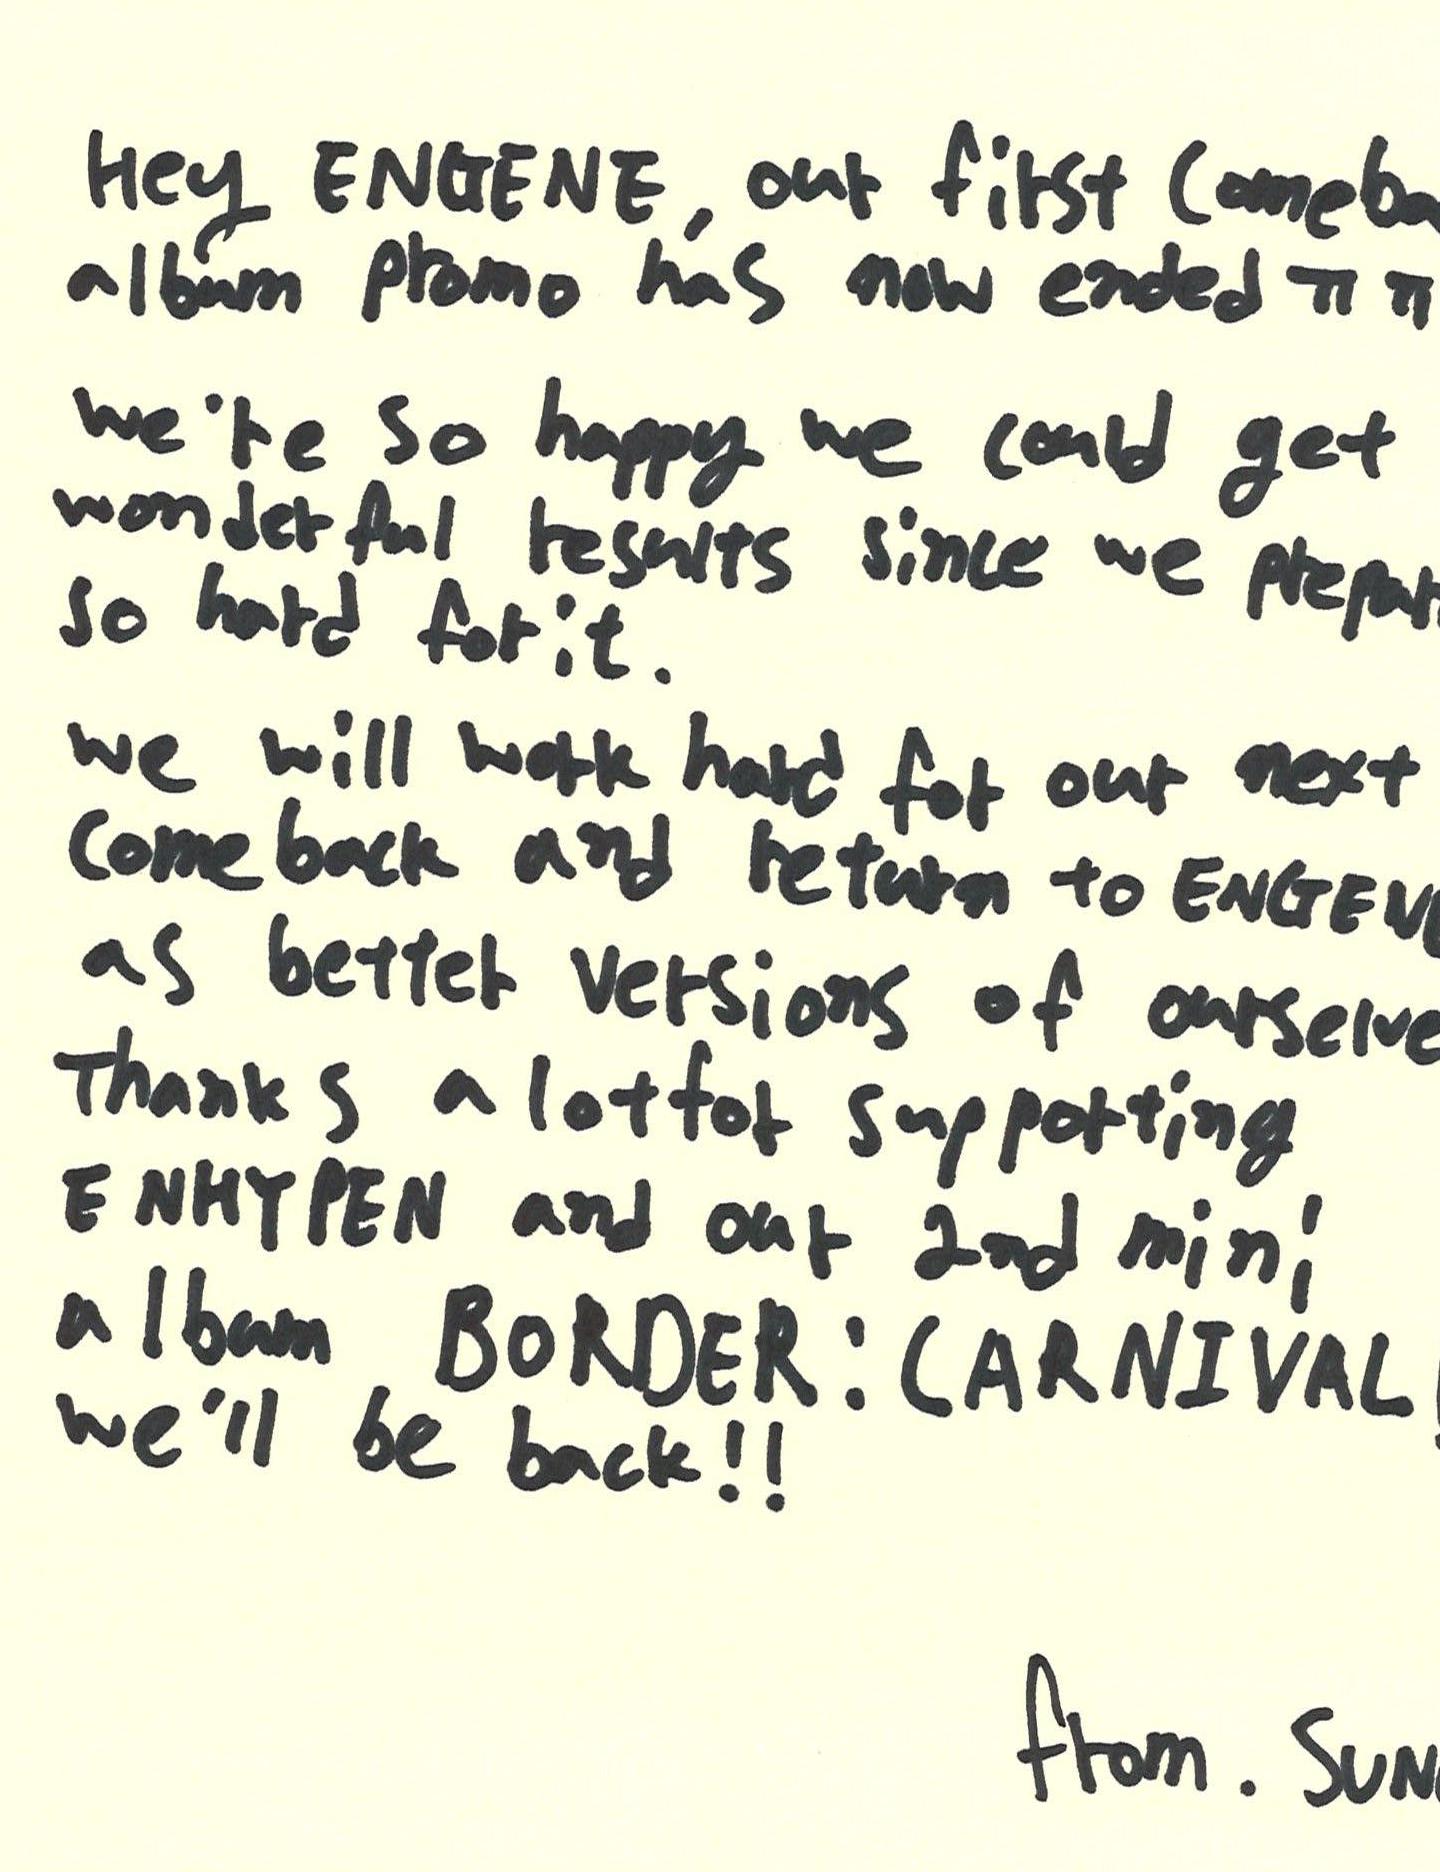 Hey ENGENE, our first Comeba
album promo has now ended ㅠㅠ
we're so happy we could get
wonderful results since we prepar
so hard for it.
we will work hard for our next
Comeback and return to ENGENE
as better versions of ourselve
Thanks a lot for supporting
ENHYPEN and our 2nd mini
album BORDER : CARNIVAL!
we'll be back!!
from. SUN